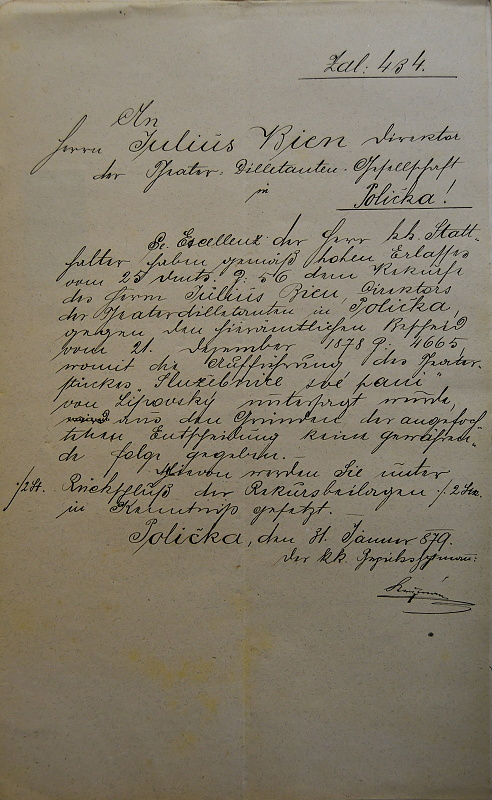 Zal: 434.
An
Herrn Julius Bien Direktor
der Theater-Dilletanten-Gesellschaft
in
Polička!
Se. Excellenz der Herr kk. Statt-
halter haben gemäß hohen Erlasses
vom 25 dmts. Z: 56 dem Rekurse
des Herrn Julius Bien, Direktors
der Theaterdilletanten in Polička,
gegen den hierämtlichen Bescheid
vom 21. Dezember 1878 Z: 4665,
womit die Aufführung des Theater-
stückes „Služebnice své paní"
von Lipovský untersagt wurde,
aus den Gründen der angefoch-
tenen Entscheidung keine gewähren-
de Folge gegeben.
Hievon werden Sie unter
·/2 St. Rückschluß der Rekursbeilagen ·/2
in Kenntniß gesetzt.
Polička, den 31. Jänner 879.
Der kk. Bezirkshptmann: